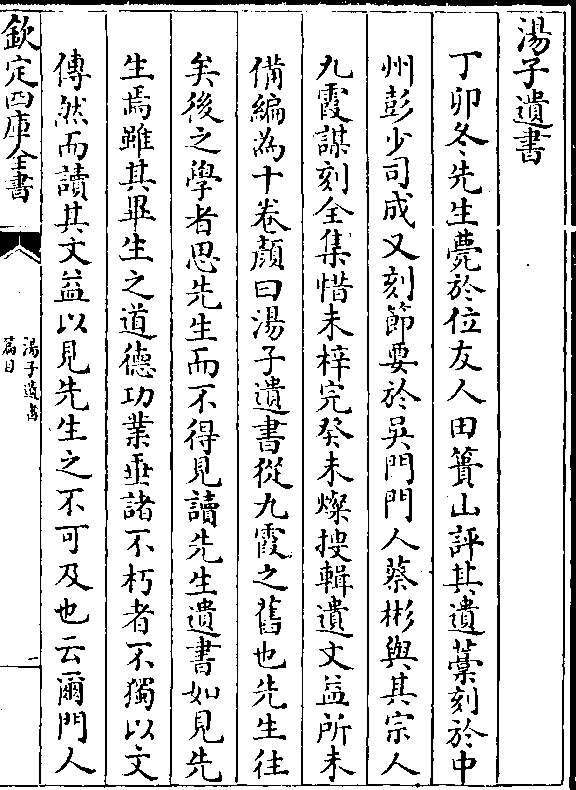 湯子遺書
丁卯冬先生薨於位友人田簣山評其遺藁刻於中
州彭少司成又刻節要於吳門門人蔡彬與其宗人
九霞謀刻全集惜未梓完癸未燦搜輯遺文益所未
備編為十卷顏曰湯子遺書從九霞之舊也先生往
矣後之學者思先生而不得見讀先生遺書如見先
生焉雖其畢生之道德功業垂諸不朽者不獨以文
傳然而讀其文益以見先生之不可及也云爾門人
欽定四庫全書
湯子遺書
篇目
一